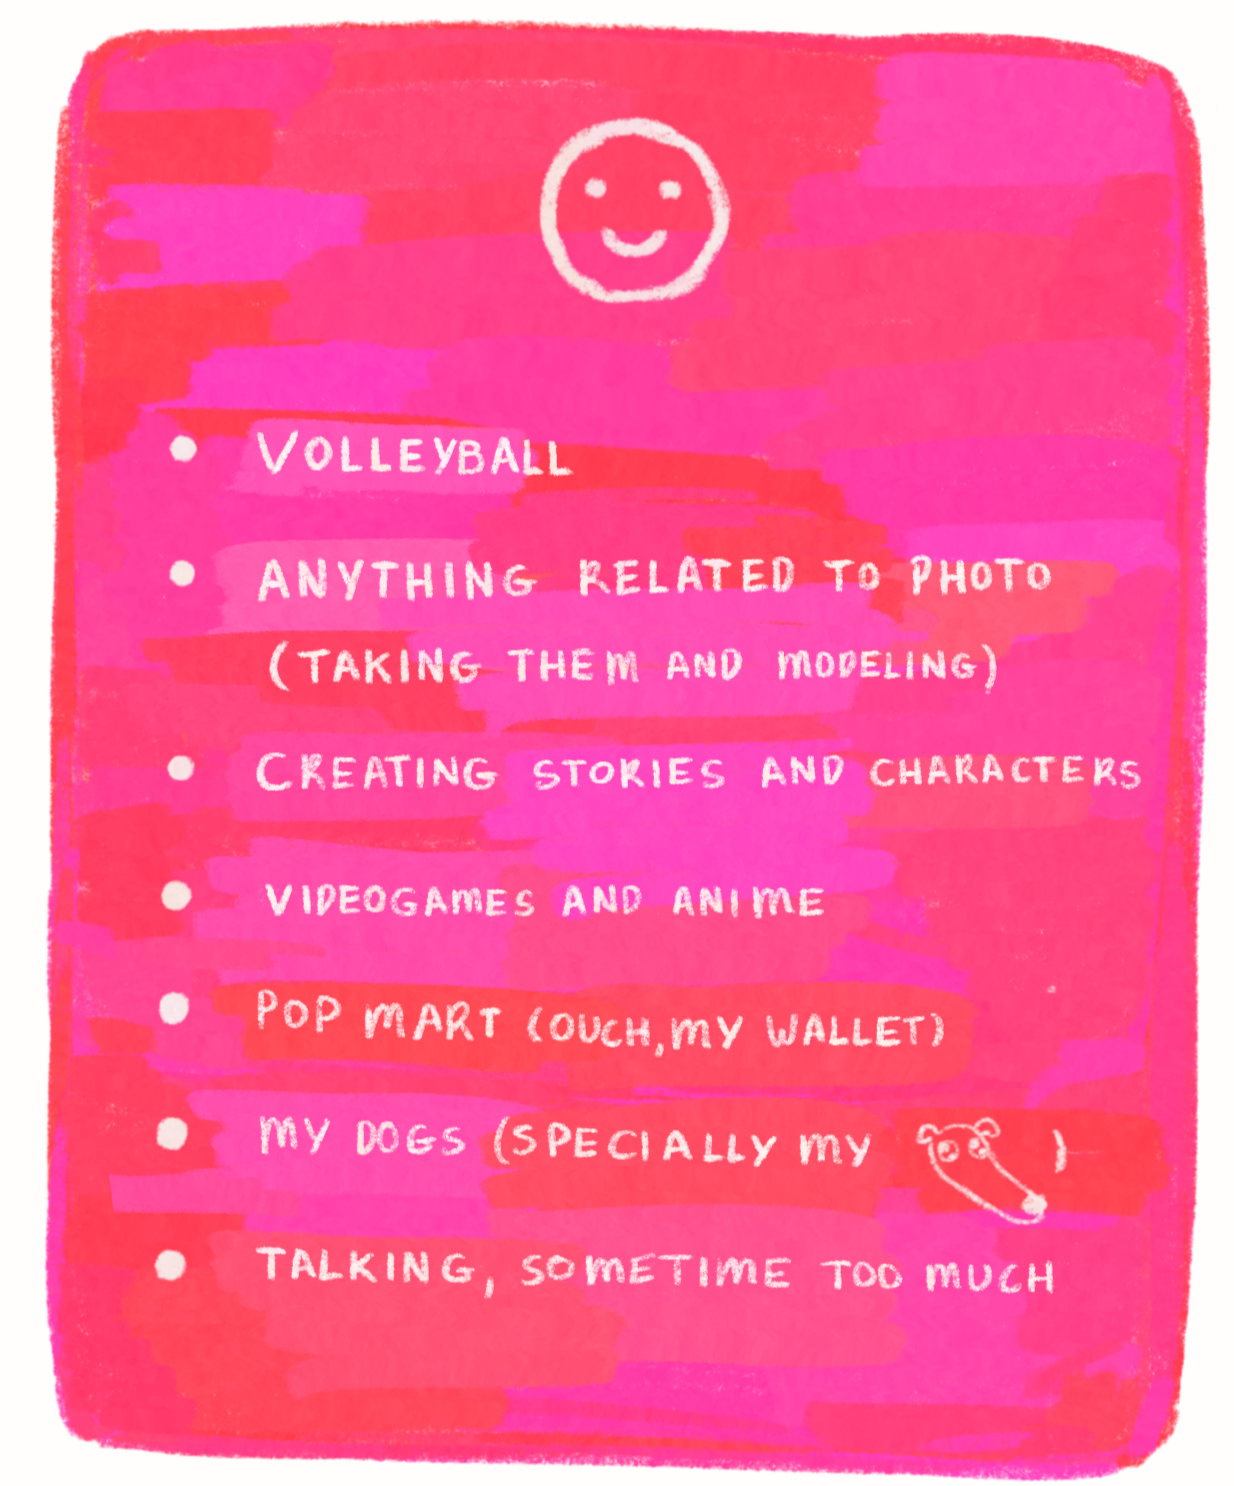 VOLLEYBALL
ANYTHING RELATED TO PHOTO
(TAKING THEM AND MODELING)
CREATING STORIES AND CHARACTERS
VIDEOGAMES AND ANIME
POP MART (OUCH,MY WALLET)
MY DOGS (SPECIALLY MY )
TALKING, SOMETIME TOO MUCH